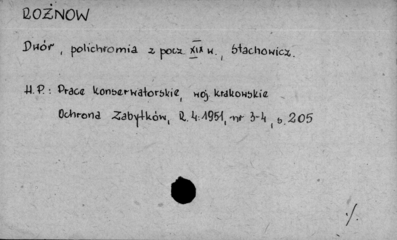 ROŻNOW
Dwór, polichromia z pocz. XIX w., Stachowicz.
H.P.: Prace konserwatorskie, woj. krakowskie
Ochrona Zabytków, R. 4:1951, nr 3-4, s. 205
./.